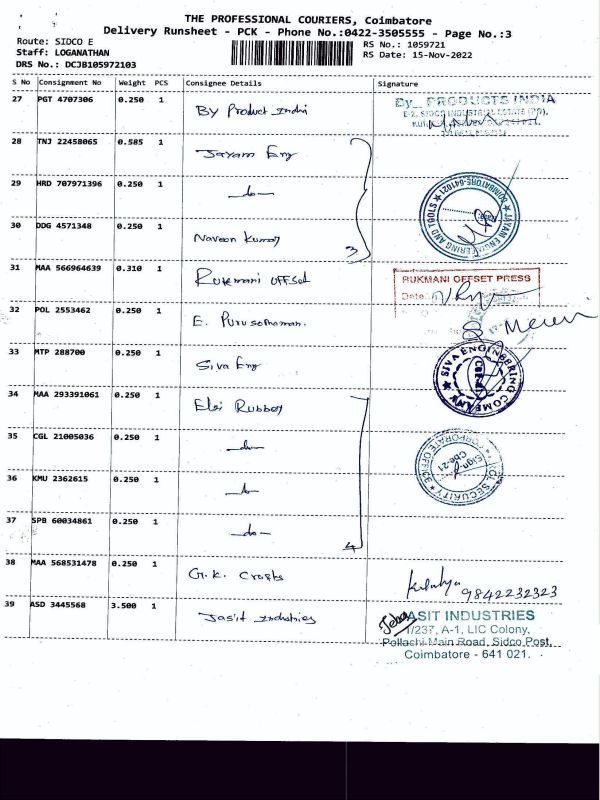 THE PROFESSIONAL COURIERS, Coimbatore
Delivery Runsheet - PCK - Phone No.:0422-3505555 - Page No.:3
Route: SIDCO E
RS No.: 1059721
Staff: LOGANATHAN
RS Date: 15-Nov-2022
DRS No.: DCJB105972103
S No Consignment No Weight PCS Consignee Details Signature
27 PGT 4707306 0.250 1 By Product India
By_ PRODUCTS INDIA
28 TNJ 22458065 0.585 1 Jayam Eng
29 HRD 707971396 0.250 1 -do-
JAYAM ENGINEERING AND TOOLS
COIMBATORE-641021
30 DDG 4571348 0.250 1 Naveen Kumar
3
31 MAA 566964639 0.310 1 Rukmani offset
RUKMANI OFFSET PRESS
Date
32 POL 2553462 0.250 1 E. Purusothaman.
33 MTP 288700 0.250 1 Siva Eng
SIVA ENGINEERING COMPANY
34 MAA 293391061 0.250 1 Elgi Rubber
35 CGL 21005036 0.250 1 -do-
SECURITY
CORPORATE OFFICE
36 KMU 2362615 0.250 1 -do-
37 SPB 60034861 0.250 1 -do-
4
38 MAA 568531478 0.250 1 G.K. Crafts
9842232323
39 ASD 3445568 3.500 1 Jasit Industries
JASIT INDUSTRIES
1/237, A-1, LIC Colony,
Pollachi Main Road, Sidco Post,
Coimbatore - 641 021.